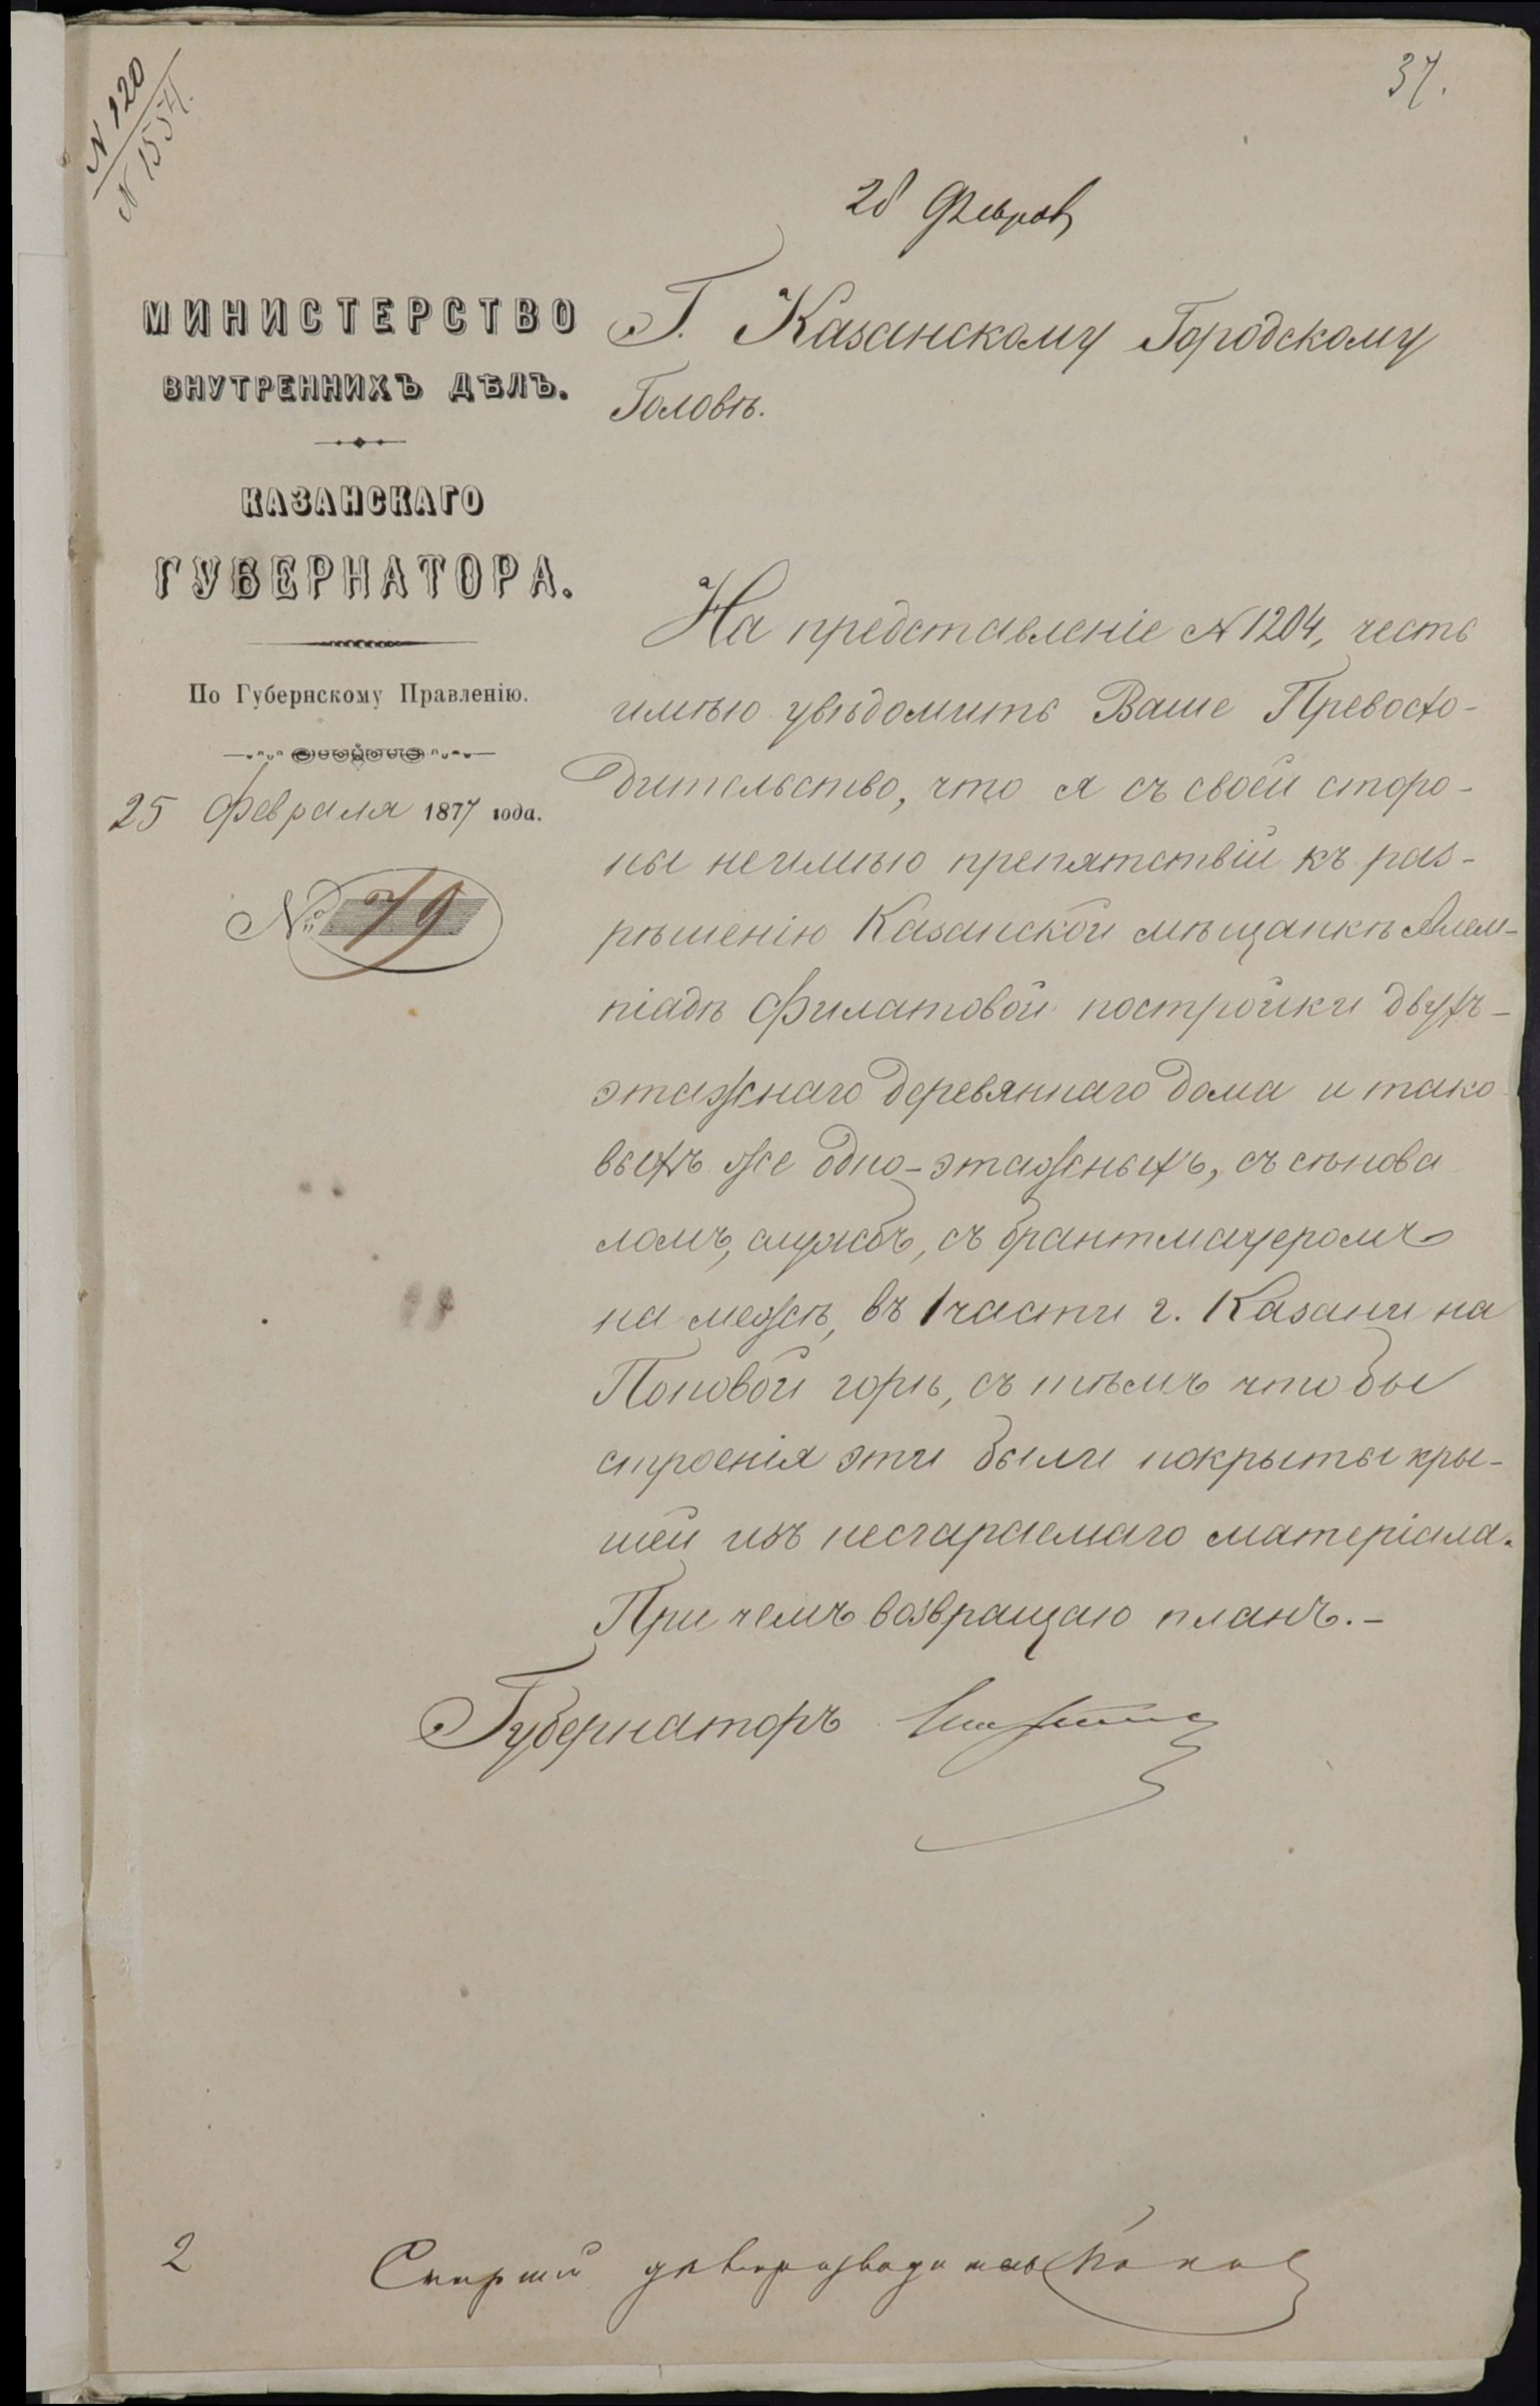 37.
N 120
N 1557
26 Февраля
МИНИСТЕРСТВО
ВНУТРЕННИХЪ ДѢЛЪ.
КАЗАНСКАГО
ГУБЕРНАТОРА.
По Губернскому Правленію.
25 Февраля 1877 года.
№ 79
Г. Казанскому Городскому
Головѣ.
На представленіе N 1204, честь
имѣю увѣдомить Ваше Превосхо-
дительство, что я съ своей сторо-
ны неимѣю препятствій къ раз-
рѣшенію Казанской мѣщанкѣ Алем-
піадѣ Филатовой постройки двухъ-
этажнаго деревяннаго дома и тако
выхъ же одно-этажныхъ, съ сѣнова
ломъ, службъ, съ брантмауеромъ
на межѣ, въ 1 части г. Казани на
Поповой горѣ, съ тѣмъ что бы
строенія эти были покрыты кры-
шей изъ несгараемаго матеріала.
При чемъ возвращаю планъ.-
Губернаторъ
2
Старшій дѣлопроизводитель